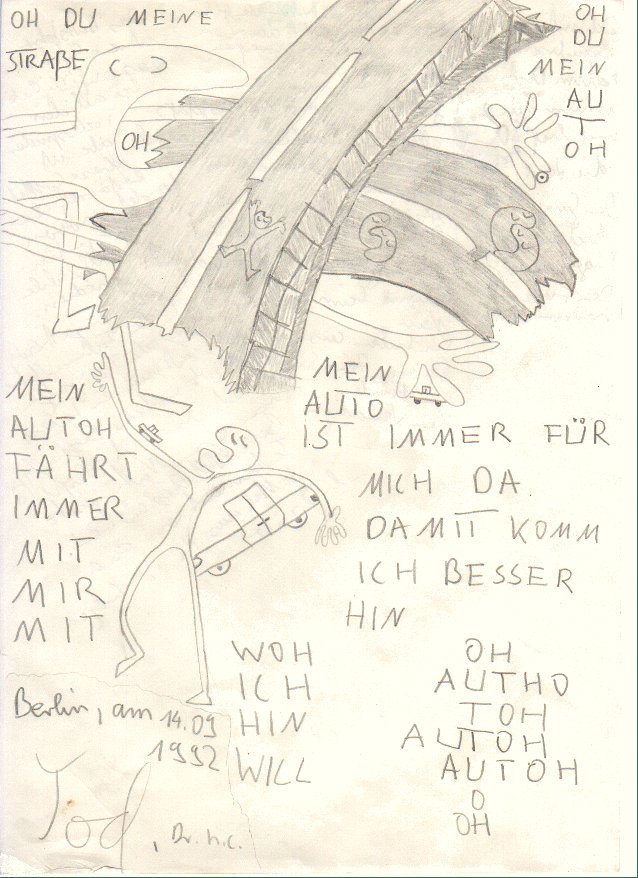 OH DU MEINE
STRAßE
OH
OH
DU
MEIN
AU
T
OH
MEIN
AUTOH
FÄHRT
IMMER
MIT
MIR
MIT
MEIN
AUTO
IST IMMER FÜR
MICH DA
DAMIT KOMM
ICH BESSER
HIN
WOH
ICH
HIN
WILL
OH
AUTHO
TOH
AUTOH
AUTOH
O
OH
Berlin, am 14.09
1992
Tod, Dr. h.c.